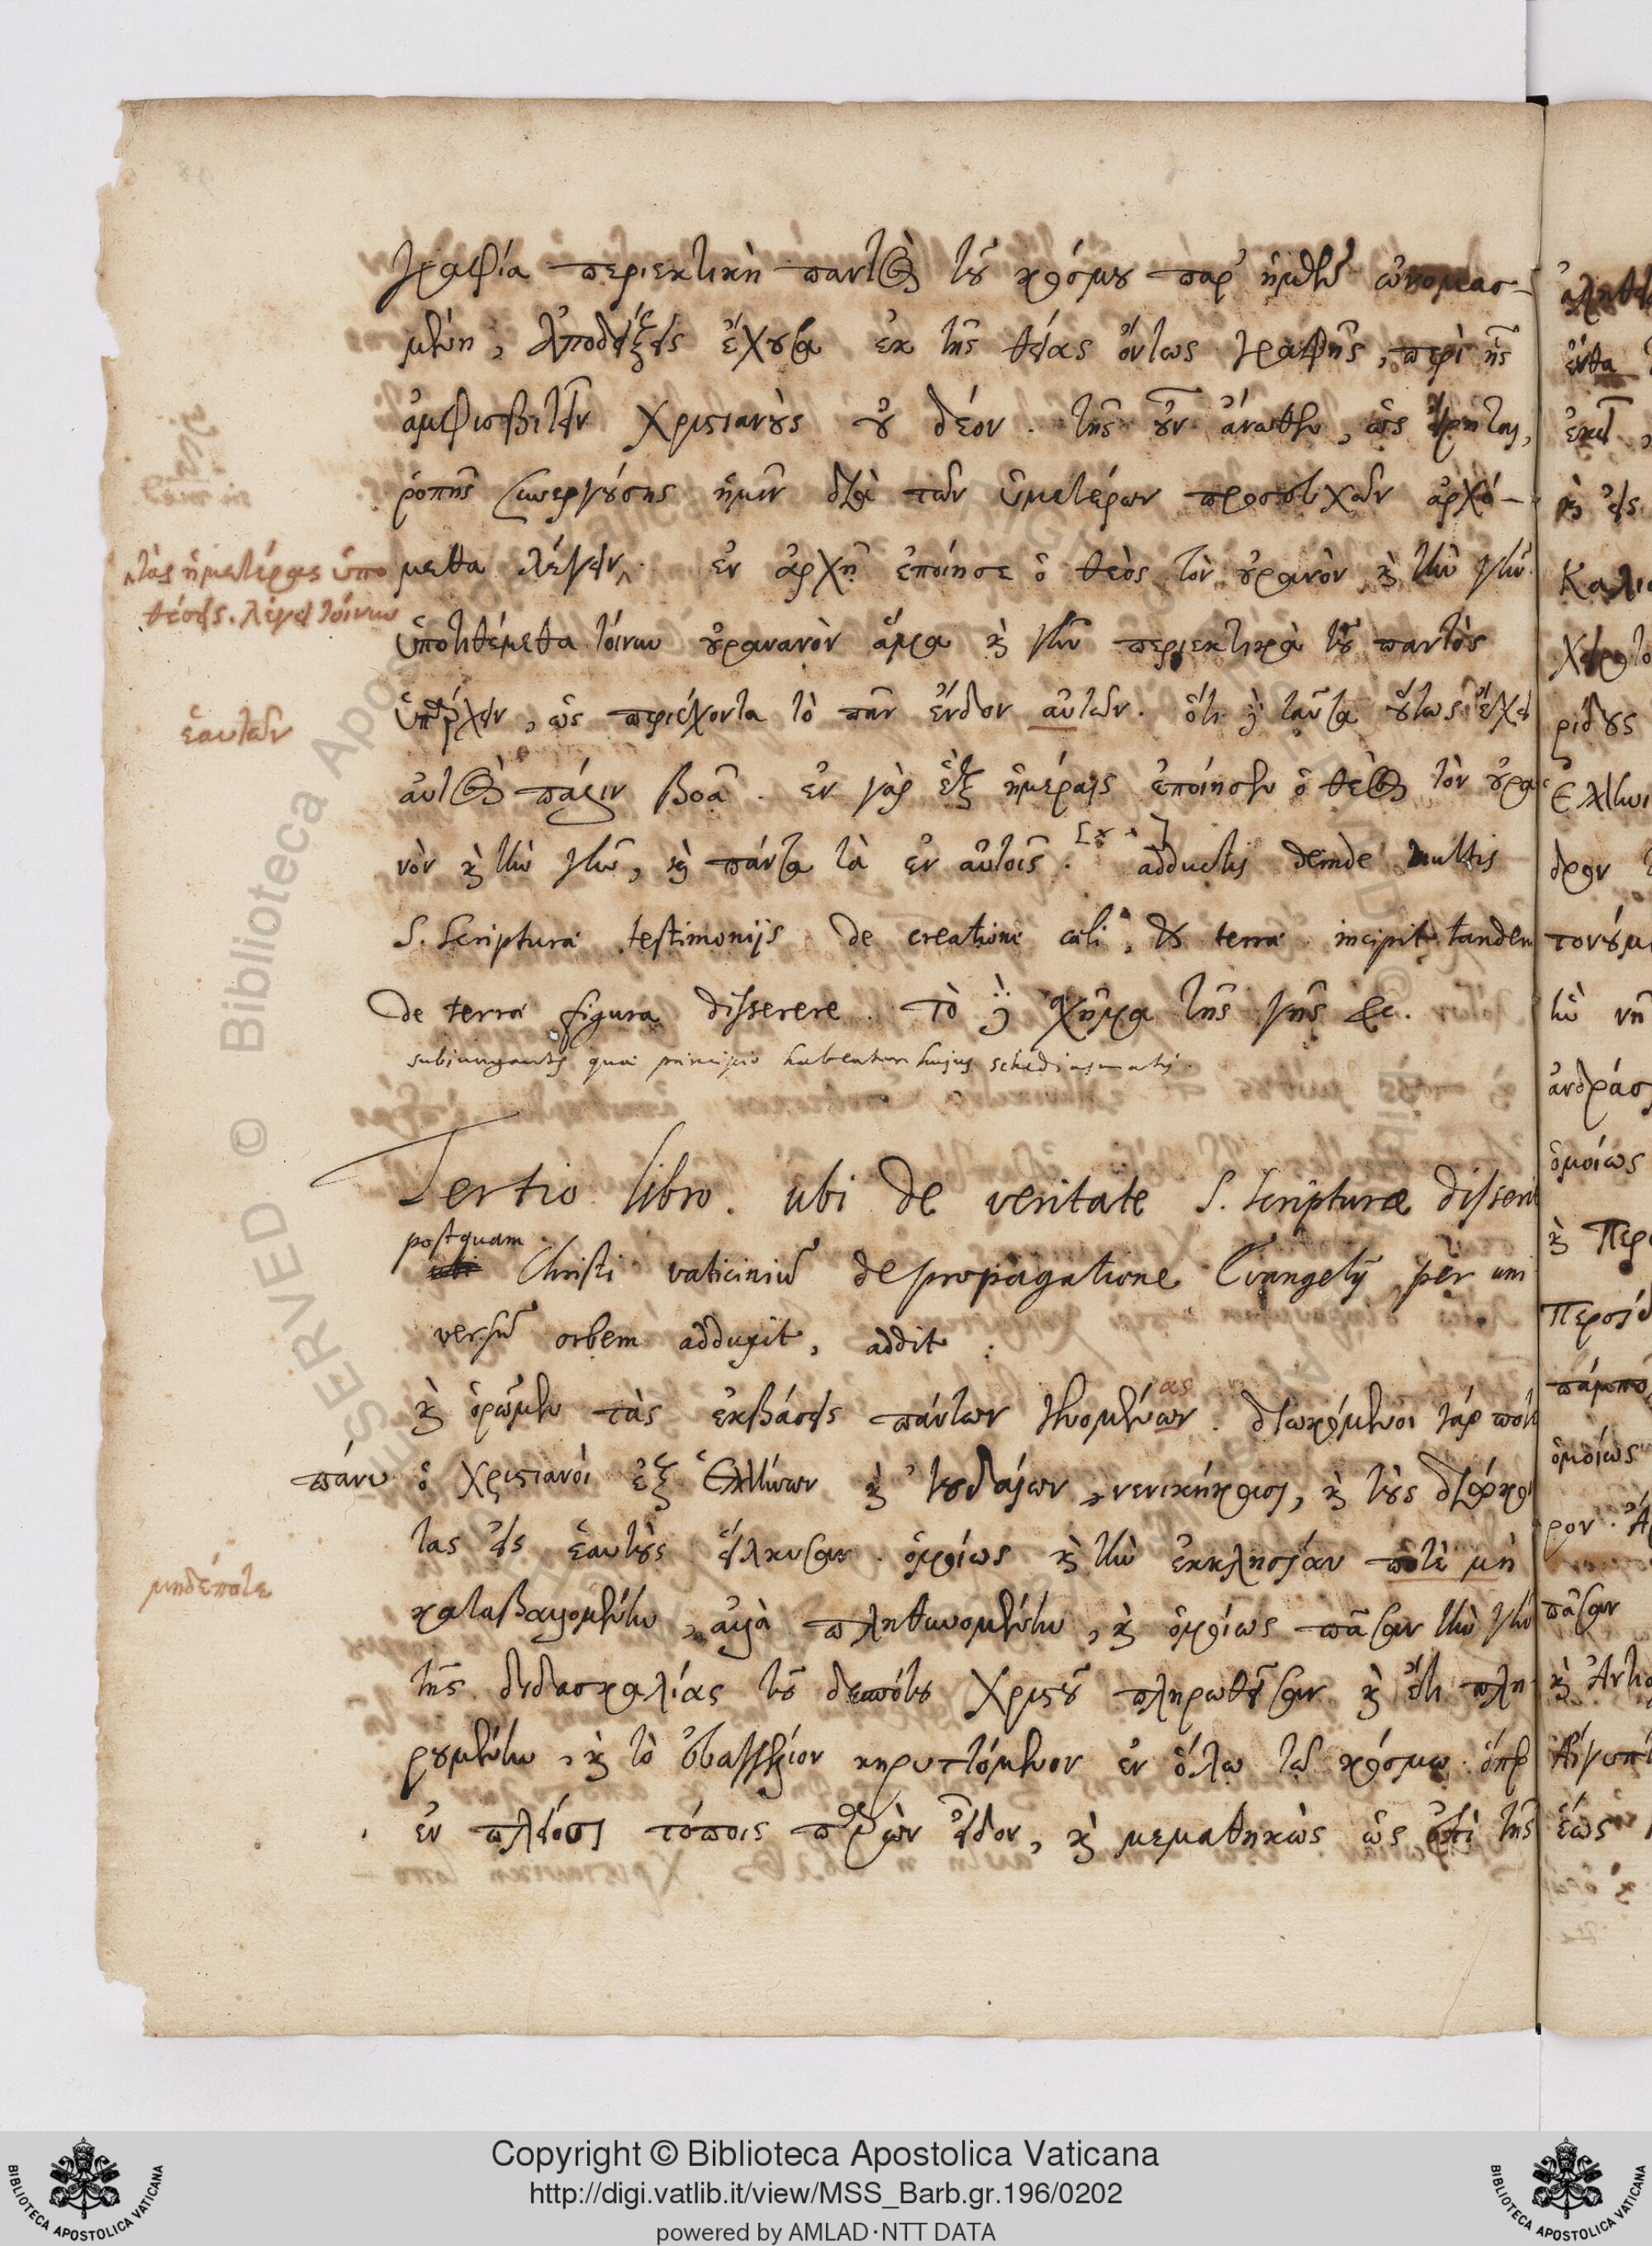 γραφία περιεκτικὴ παντὸς τοῦ κόσμου παρ' ἡμῶν ὠνομασ-
μένη, ἀποδείξεις ἔχουσα ἐκ τῆς θείας ὄντως γραφῆς, περὶ ἧς
ἀμφισβιτεῖν Χριστιανοὺς οὐ δέον. τῆς οὖν ἄνωθεν, ὡς εἴρηται,
ῥοπῆς συνεργούσης ἡμῖν διὰ τῶν ὑμετέρων προσευχῶν ἀρχό-
μεθα λέγειν. ἐν ἀρχῇ ἐποίησε ὁ θεὸς τὸν οὐρανὸν καὶ τὴν γῆν.
τὰς ἡμετέρας ὑπο
θέσεις. λέγει τοίνυν
ὑποτιθέμεθα τοίνυν οὐρανανὸν ἅμα καὶ γῆν περιεκτικὰ τοῦ παντὸς
ὑπάρχειν, ὡς περιέχοντα τὸ πᾶν ἔνδον αὐτῶν. ὅτι δὲ ταῦτα οὕτως ἔχει
ἑαυτῶν
αὐτὸς πάσιν βοᾶ. ἐν γὰρ ἓξ ἡμέραις ἐποίησεν ὁ θεὸς τὸν οὐρα
νὸν καὶ τὴν γῆν, καὶ πάντα τὰ ἐν αὐτοῖς. adductis deinde multis
S. Scripturæ testimonijs de creatione cæli, & terræ incipit tandem
de terræ figura disserere. τὸ δὲ σχῆμα τῆς γῆς &c.
subiungantur quæ principio habentur hujus schediasmatis.
Tertio libro. ubi de veritate S. Scripturæ disserit
postquam Christi vaticiniũ de propagatione Evangelij per uni
versũ orbem adduxit, addit:
καὶ ὁρῶμεν τὰς ἐκβάσεις πάντων γενομένων. διωκόμενοι γὰρ πολ
ας
πάνυ ὁ χριστιανοὶ ἐξ Ἑλλήνων καὶ Ἰουδαίων, νενικήκασι, καὶ τοὺς διώκο
τας εἰς ἑαυτοὺς εἵλκυσαν. ὁμοίως καὶ τὴν ἐκκλησίαν ποτὲ μὴ
μηδέποτε
καταβαλομένην, ἀλλὰ πληθυνομένην, καὶ ὁμοίως πᾶσαν τὴν γῆν
τῆς διδασκαλίας τοῦ δεσπότου Χριστοῦ πληρωθεῖσαν καὶ ἔτι πλη
ρουμένην, καὶ τὸ εὐαγγέλιον κηρυττόμενον ἐν ὅλῳ τῷ κόσμῳ. ὅπερ
ἐν πλείοσι τόποις παρὼν εἶδον, καὶ μεμαθηκὼς ὡς ἐπὶ τῆς
ἔνθα
ὁμοίως
ὁμοίως
πᾶσαν
ἕως
Copyright © Biblioteca Apostolica Vaticana
http://digi.vatlib.it/view/MSS_Barb.gr.196/0202
powered by AMLAD·NTT DATA
BIBLIOTECA APOSTOLICA VATICANA
BIBLIOTECA APOSTOLICA VATICANA